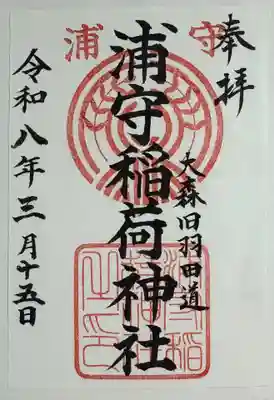 奉拝
浦守
大森旧羽田道
浦守稲荷神社
令和八年三月十五日